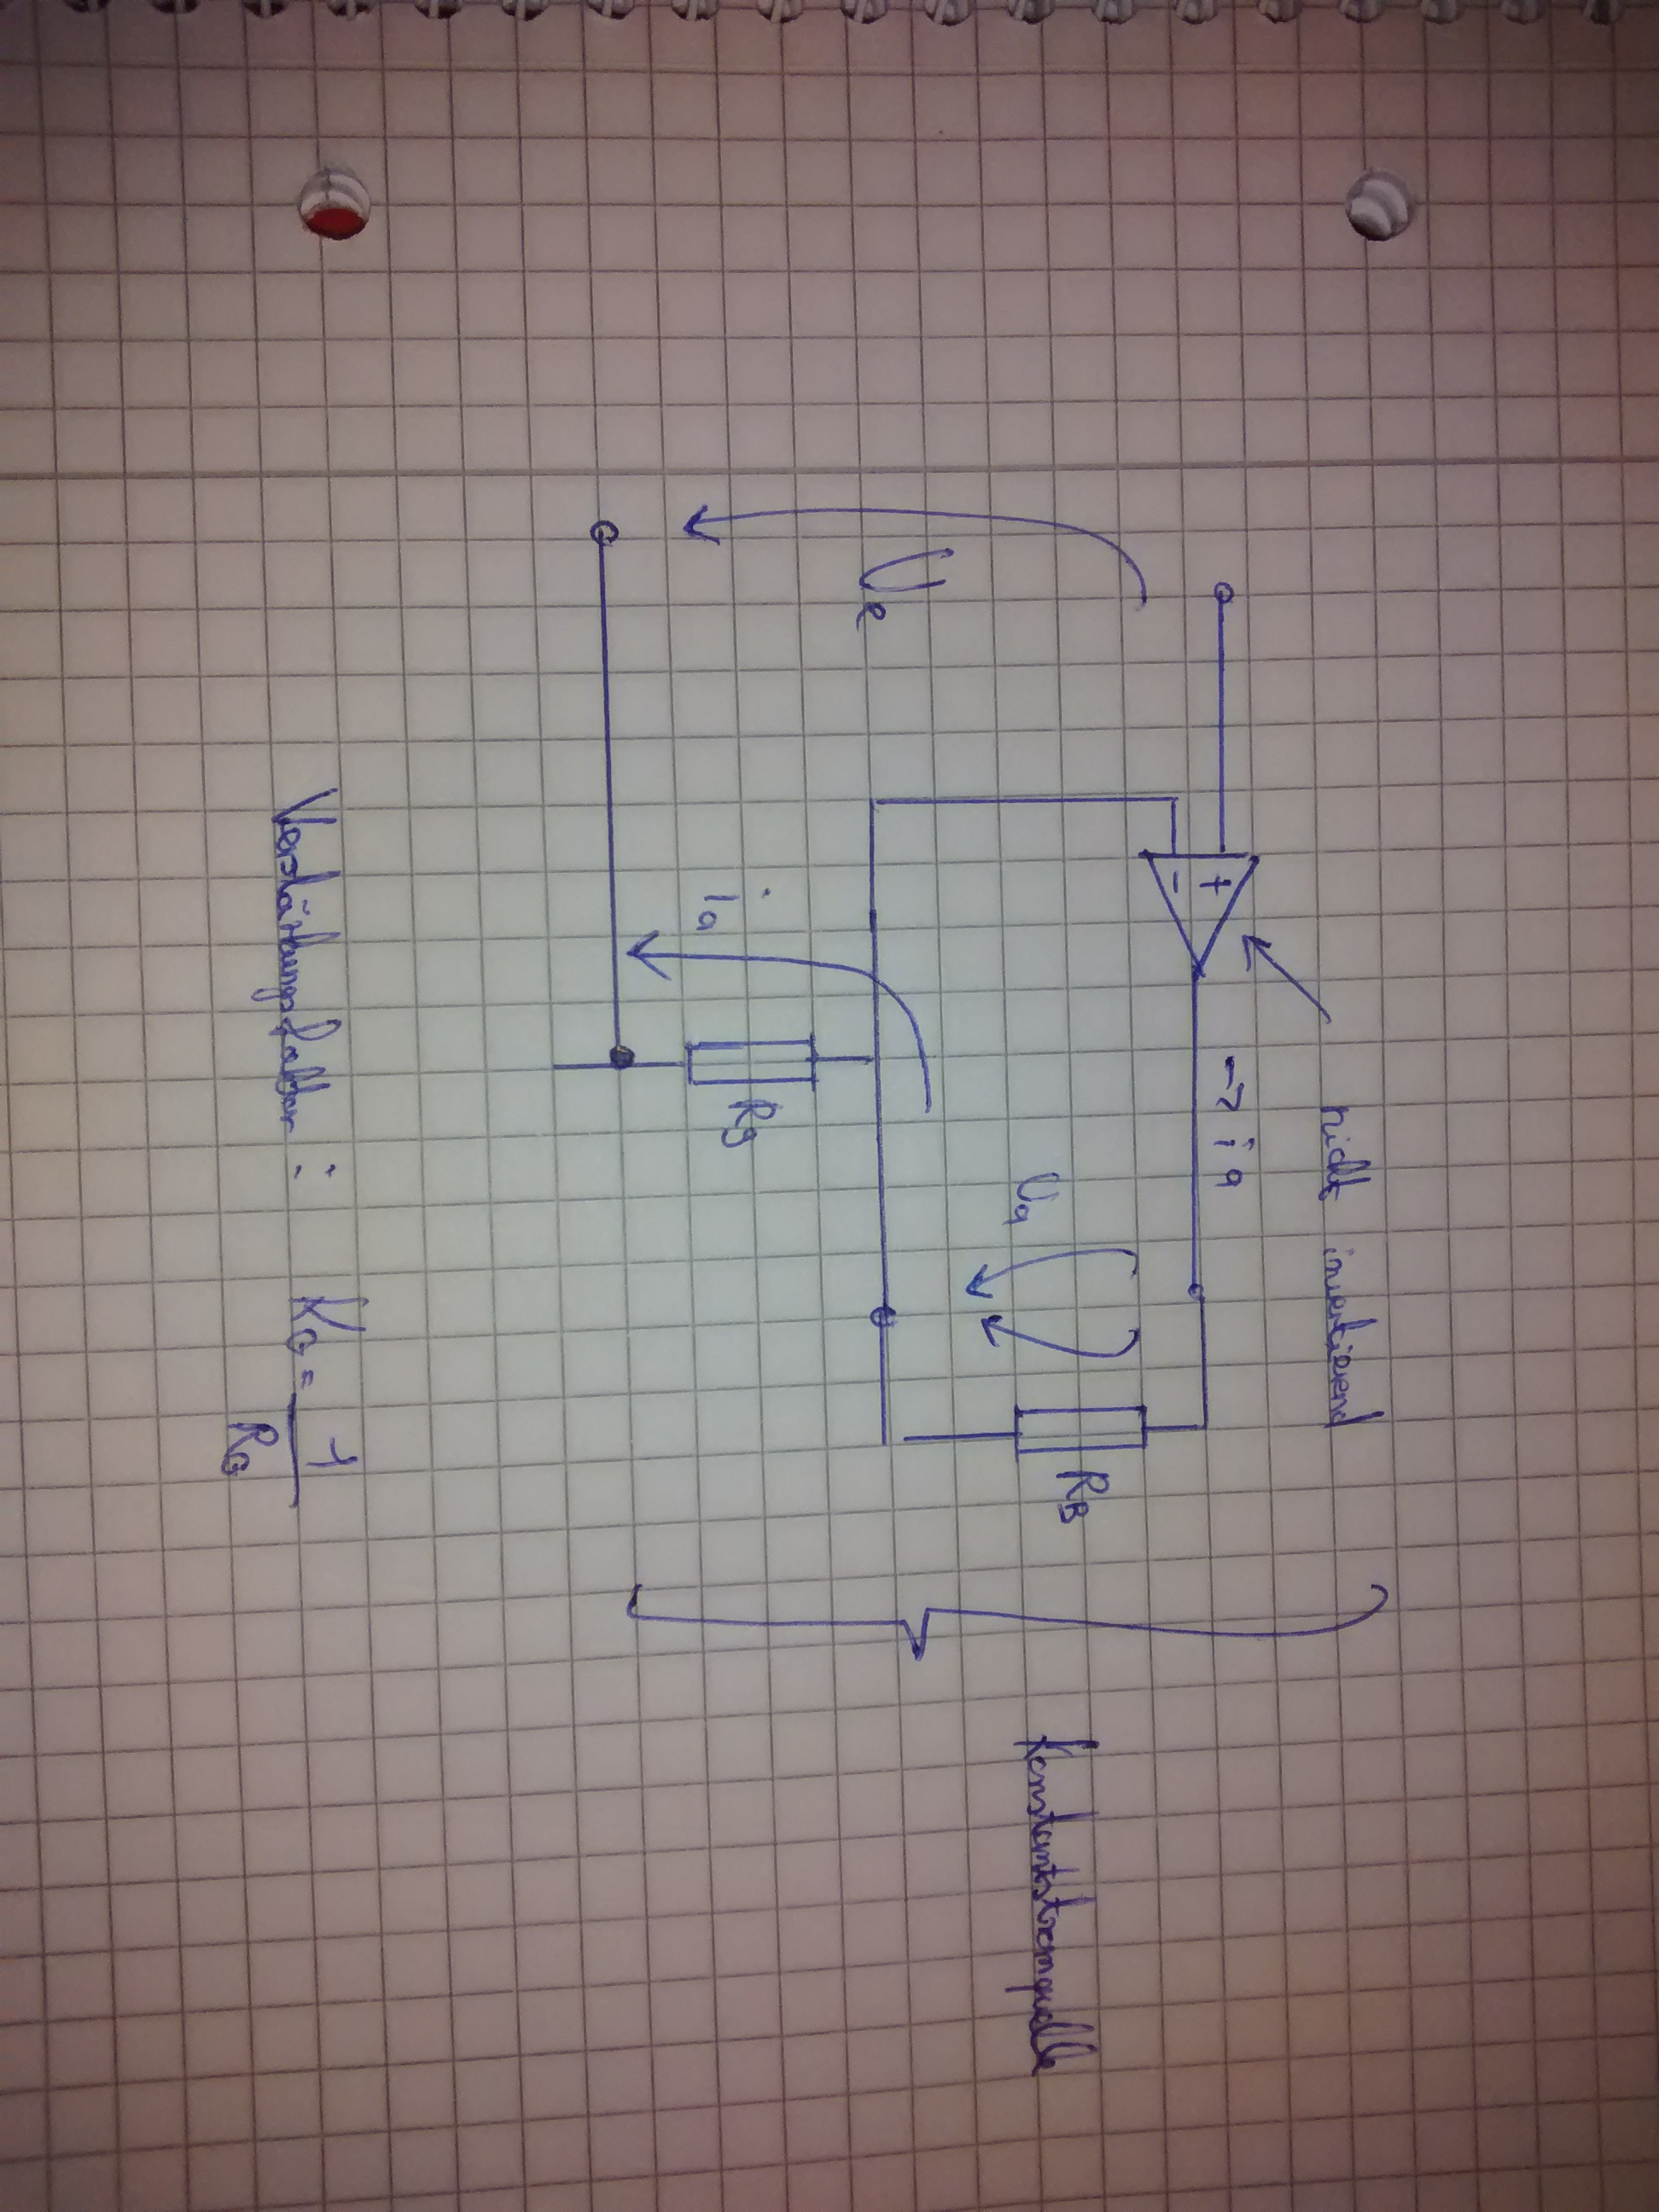 nicht invertierend
+
-
-> ia
Ue
Ua
RB
ia
Rg
Konstantstromquelle
Verstärkungsfaktor : KG = 1
RG